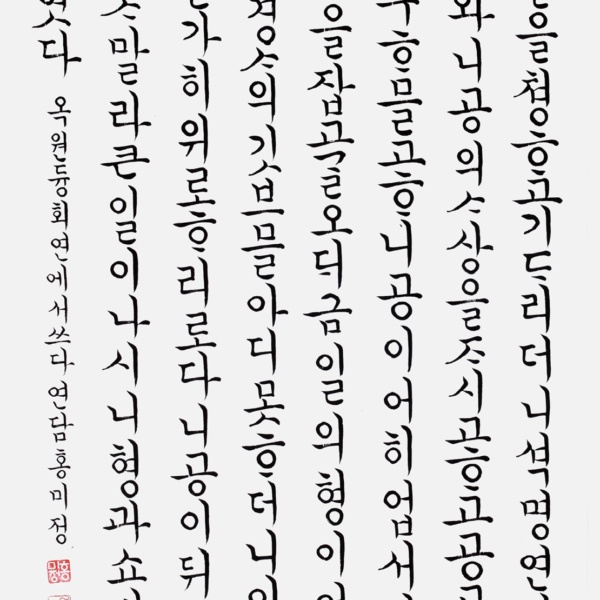 을쳥ᄒᆞ고기ᄃᆞ리더니셕명연
와니공의ᄉᆞ상을ᄌᆞ시고ᄒᆞ고공
ᄒᆞ믈고ᄒᆞ니공이어히업서
을잡고ᄀᆞᆯ오ᄃᆡ금일의형이
졍ᄉᆞ의깃브믈아디못ᄒᆞ더니
가히위로ᄒᆞ리로다니공이뒤
말라큰일이나시니형과쇼
엿다 옥원듕회연에서쓰다연담홍미정